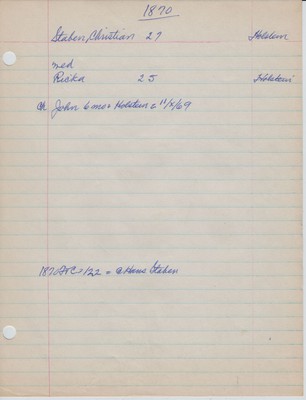 1870
Staben, Christian 27 Holstein
med
Ricka 25 Holstein
ch John 6 mos Holstein = 11/8/69
= @ Hans Staben